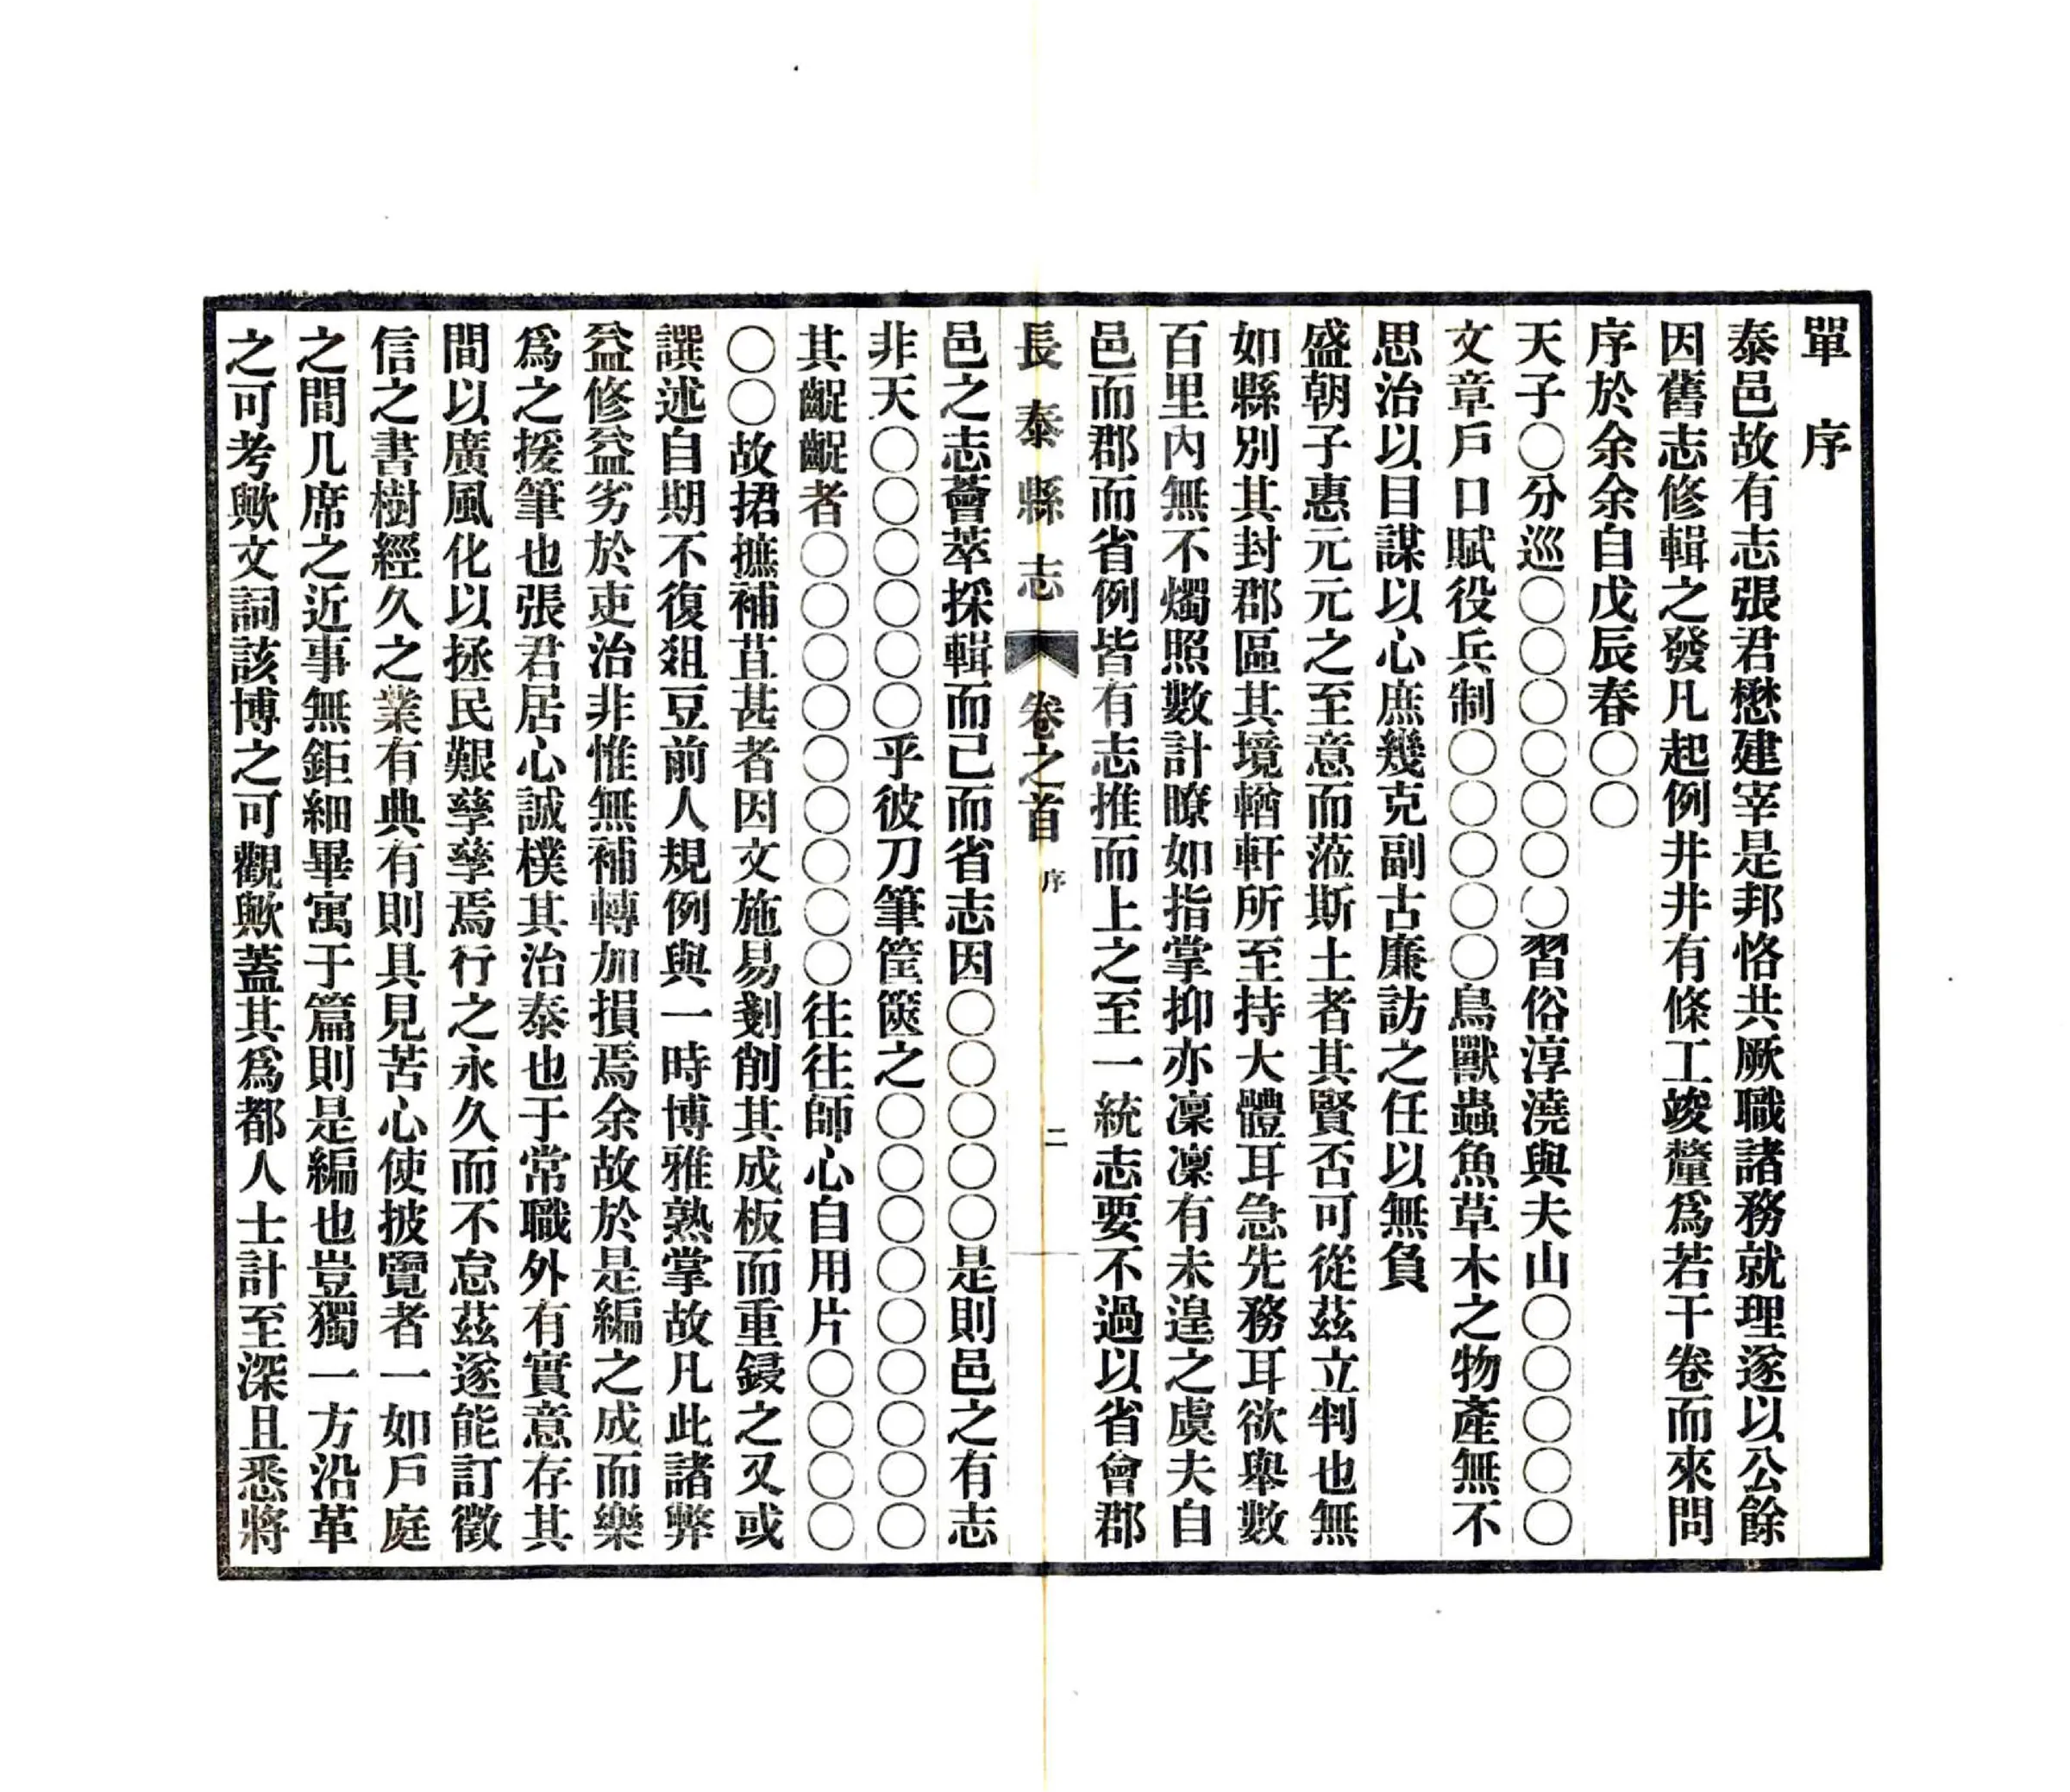 單　序
泰邑故有志張君懋建宰是邦恪共厥職諸務就理遂以公餘
因舊志修輯之發凡起例井井有條工竣釐爲若干卷而來問
序於余余自戊辰春〇〇
天子〇分巡〇〇〇〇〇〇〇習俗淳澆與夫山〇〇〇〇〇
文章戶口賦役兵制〇〇〇〇〇鳥獸蟲魚草木之物產無不
思治以目謀以心庶幾克副古廉訪之任以無負
盛朝子惠元元之至意而蒞斯土者其賢否可從茲立判也無
如縣別其封郡區其境輶軒所至持大體耳急先務耳欲舉數
百里內無不燭照數計瞭如指掌抑亦凜凜有未遑之虞夫自
邑而郡而省例皆有志推而上之至一統志要不過以省會郡
長泰縣志　卷之首　序　二
邑之志薈萃採輯而己而省志因〇〇〇〇〇是則邑之有志
非天〇〇〇〇〇〇乎彼刀筆筐篋之〇〇〇〇〇〇〇〇〇
其齷齪者〇〇〇〇〇〇〇〇〇往往師心自用片〇〇〇〇
〇〇故捃摭補苴甚者因文施易剗削其成板而重鋟之又或
譔述自期不復俎豆前人規例與一時博雅熟掌故凡此諸弊
益修益劣於吏治非惟無補轉加損焉余故於是編之成而樂
爲之援筆也張君居心誠樸其治泰也于常職外有實意存其
間以廣風化以拯民艱孳孳焉行之永久而不怠茲遂能訂徵
信之書樹經久之業有典有則具見苦心使披覽者一如戶庭
之間几席之近事無鉅細畢寓于篇則是編也豈獨一方沿革
之可考歟文詞該博之可觀歟蓋其爲都人士計至深且悉將